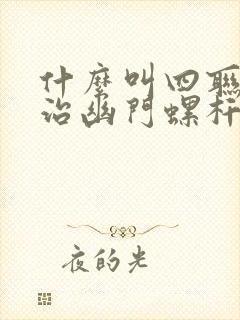 什麼叫四聯
治幽門螺杆
夜的光